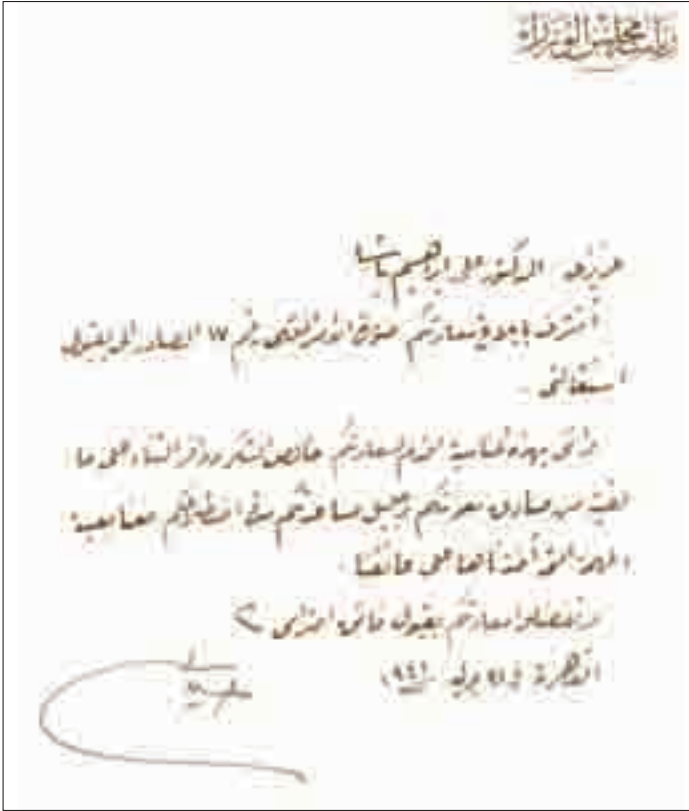 رياسة مجلس الوزراء
عزيزى الدكتور على إبراهيم باشا
أتشرف بإبلاغ سعادتكم صورة الأمر الملكى رقم ١٧ الصادر إلى بقبول
استقالتى .
وإنى بهذه المناسبة أقدم لسعادتكم خالص الشكر ووافر الثناء على ما
لقيته من صادق معونتكم وجميل مساعدتكم فى
المهمة التى أخذناها على عاتقنا .
وتفضلوا سعادتكم بقبول فائق احترامى
القاهرة فى يونيه ١٩٤١